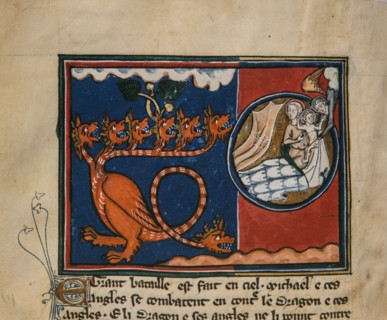 E Grant bataille est fait en ciel. Michael e ces
Angles se combatent en contre le dragon e ces
angles. E li Dragon e ses angles ne li pount contre